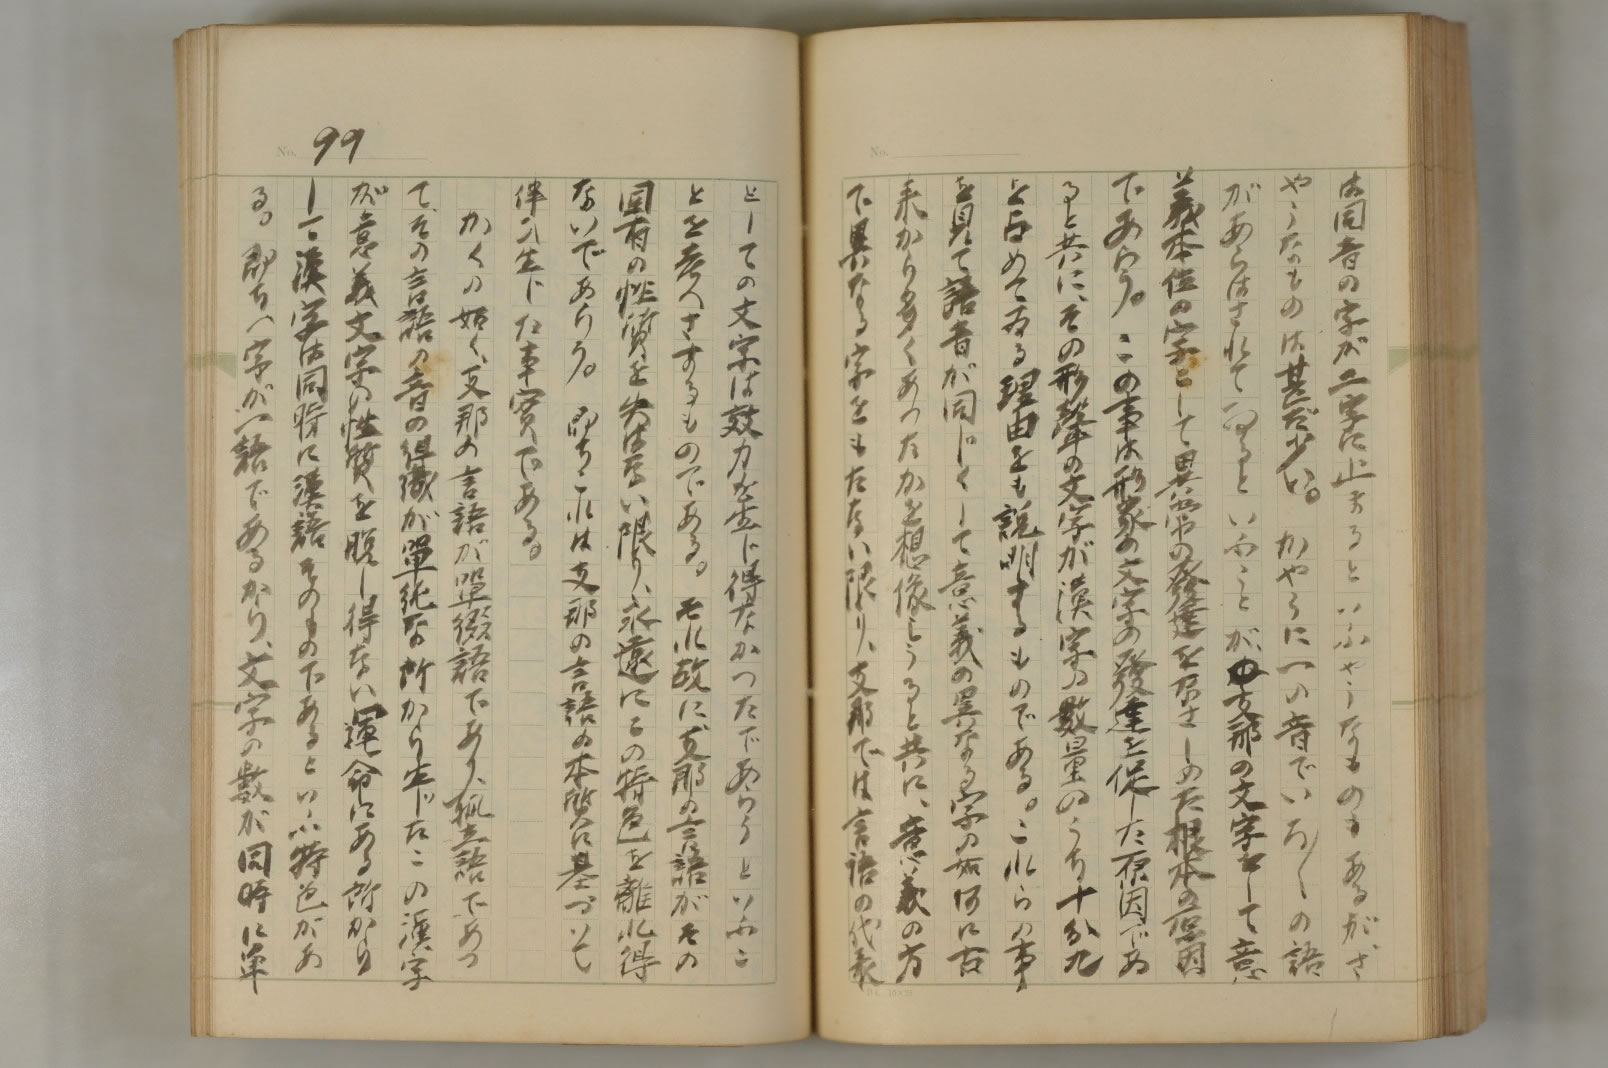 は同音の字が二字に止まるといふやうなものもあるがざ
やうなものは甚だ少い。かやうに一つの音でいろ〳〵の語
があらはされてゐるといふことが、支那の文字をして意
義本位の字として異常の發達をなさしめた根本の原因
であらう。この事は形象の文字の發達を促した原因であ
ると共に、その形聲の文字が漢字の數量のうち十分九
を占めてゐる理由をも説明するものである。これらの事
を見て語音が同じくして意義の異なる字の如何に古
来から多くあつたかを想像しうると共に、意義の方
で異なる字をもたない限り、支那では言語の代表
No.
No. 99
としての文字は效力を生じ得なかつたであらうといふこ
とを考へさするものである。それ故に支那の言語がその
固有の性質を失はない限り、永遠にこの特色を離れ得
ないであらう。即ちこれは支那の言語の本質に基づいて
伴ひ生じた事實である。
かくの如く、支那の言語が單綴語であり、孤立語であつ
て、その言語の音の組織が單純な所から生じたこの漢字
が意義文字の性質を脱し得ない運命にある所から
して漢字は同時に漢語そのものであるといふ特色があ
る。即ち一字が一語であるから、文字の數が同時に單